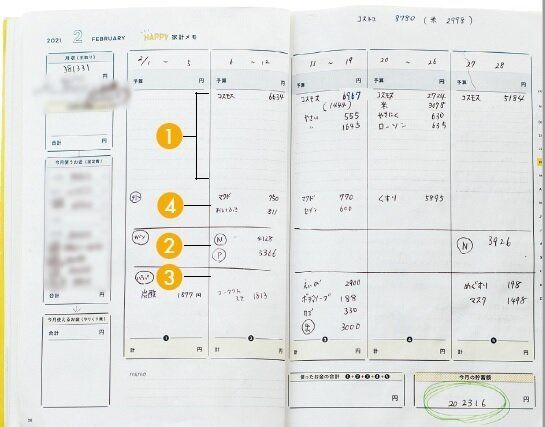 コストコ 8780 (米 2998)
2021 2 FEBRUARY HAPPY 家計メモ
月収(手取り)
381331
円
合計 円
今月使うお金(固定費)
合計 円
今月使えるお金(やりくり費)
合計 円
2/1 ~ 5
予算 円
炭酸 1577円
1
計 円
6 ~ 12
予算 円
コスモス 6634
マクド 750
811
N 4128
P 3366
1313
2
計 円
~ 19
予算 円
コスモス 6967
(1444)
やさい 555
〃 1645
マクド 770
セブン 600
えいが 2900
188
330
米 3000
3
計 円
20 ~ 26
予算 円
コスモス 2724
米 3098
やきにく 630
ローソン 635
くすり 5895
4
計 円
27 28
円
コスモス 5184
N 3926
めぐすり 198
マスク 1498
5
計 円
1
4
2
3
memo
使ったお金の合計 1+2+3+4+5
円
今月の貯蓄額
202316 円